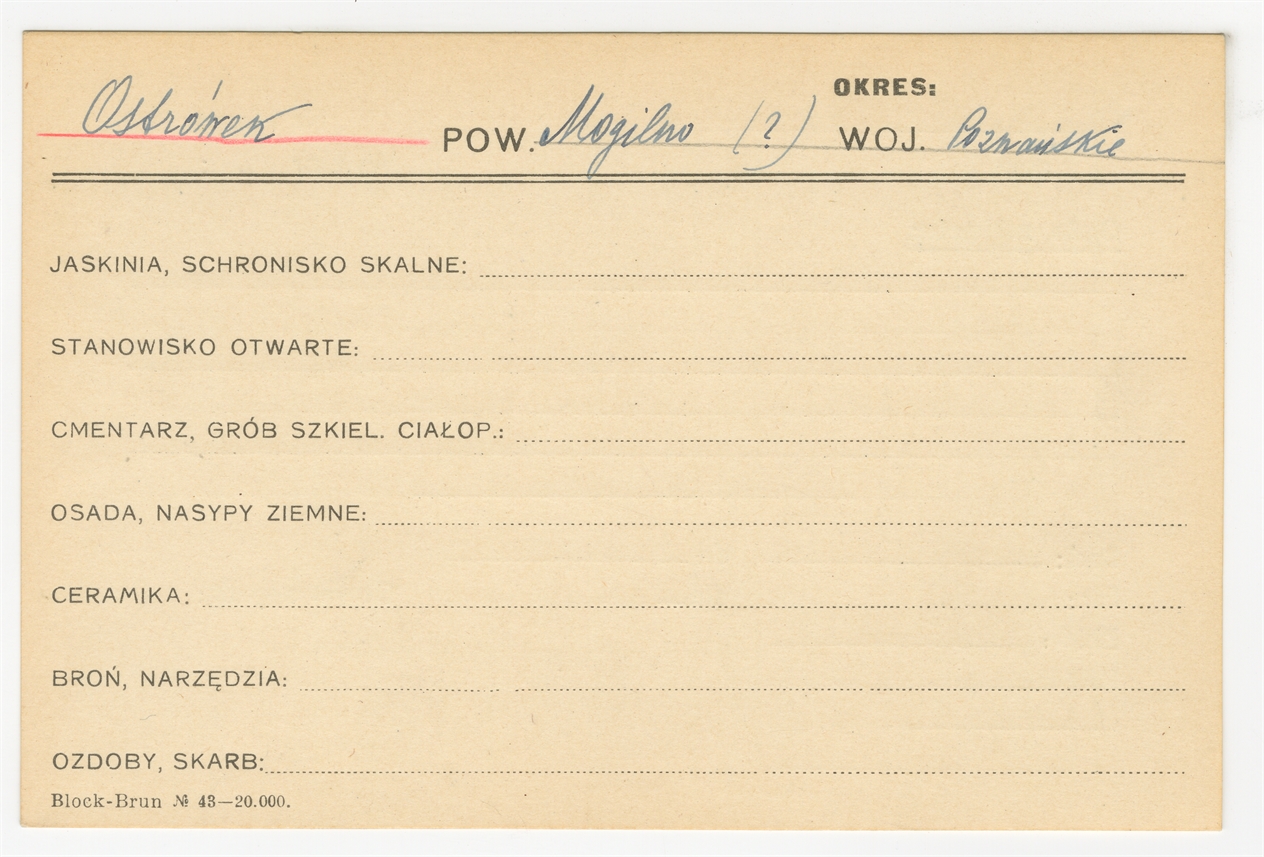 OKRES:
Ostrówek POW. Mogilno (?) WOJ. Poznańskie
JASKINIA, SCHRONISKO SKALNE:
STANOWISKO OTWARTE:
CMENTARZ, GRÓB SZKIEL. CIAŁOP.:
OSADA, NASYPY ZIEMNE:
CERAMIKA:
BROŃ, NARZĘDZIA:
OZDOBY, SKARB:
Block-Brun № 43—20.000.